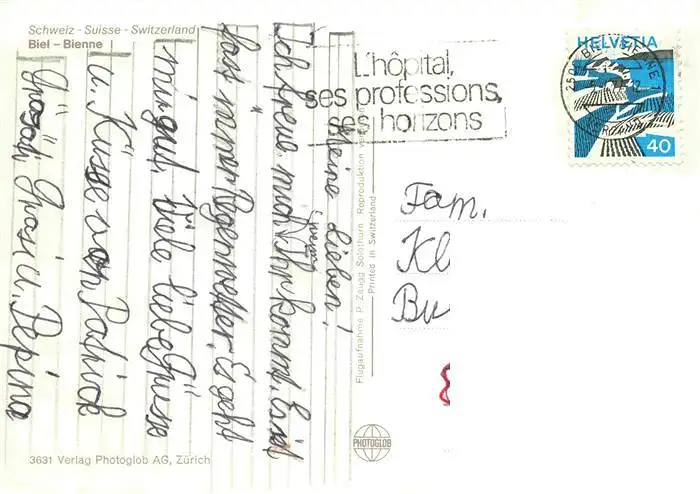 Schweiz - Suisse - Switzerland
Biel - Bienne
L'hôpital,
ses professions,
ses horizons
HELVETIA
40
Meine Lieben!
Ich freue mich wenn Ihr kommt. Es ist
fast immer Regenwetter. Es geht
mir gut. Viele liebe Grüsse
u. Küsse von Patrick
Grosi u. Pepina
Fam.
Kl
Bu
Flugaufnahme P. Zaugg Solothurn Reproduktion
Printed in Switzerland
PHOTOGLOB
3631 Verlag Photoglob AG, Zürich